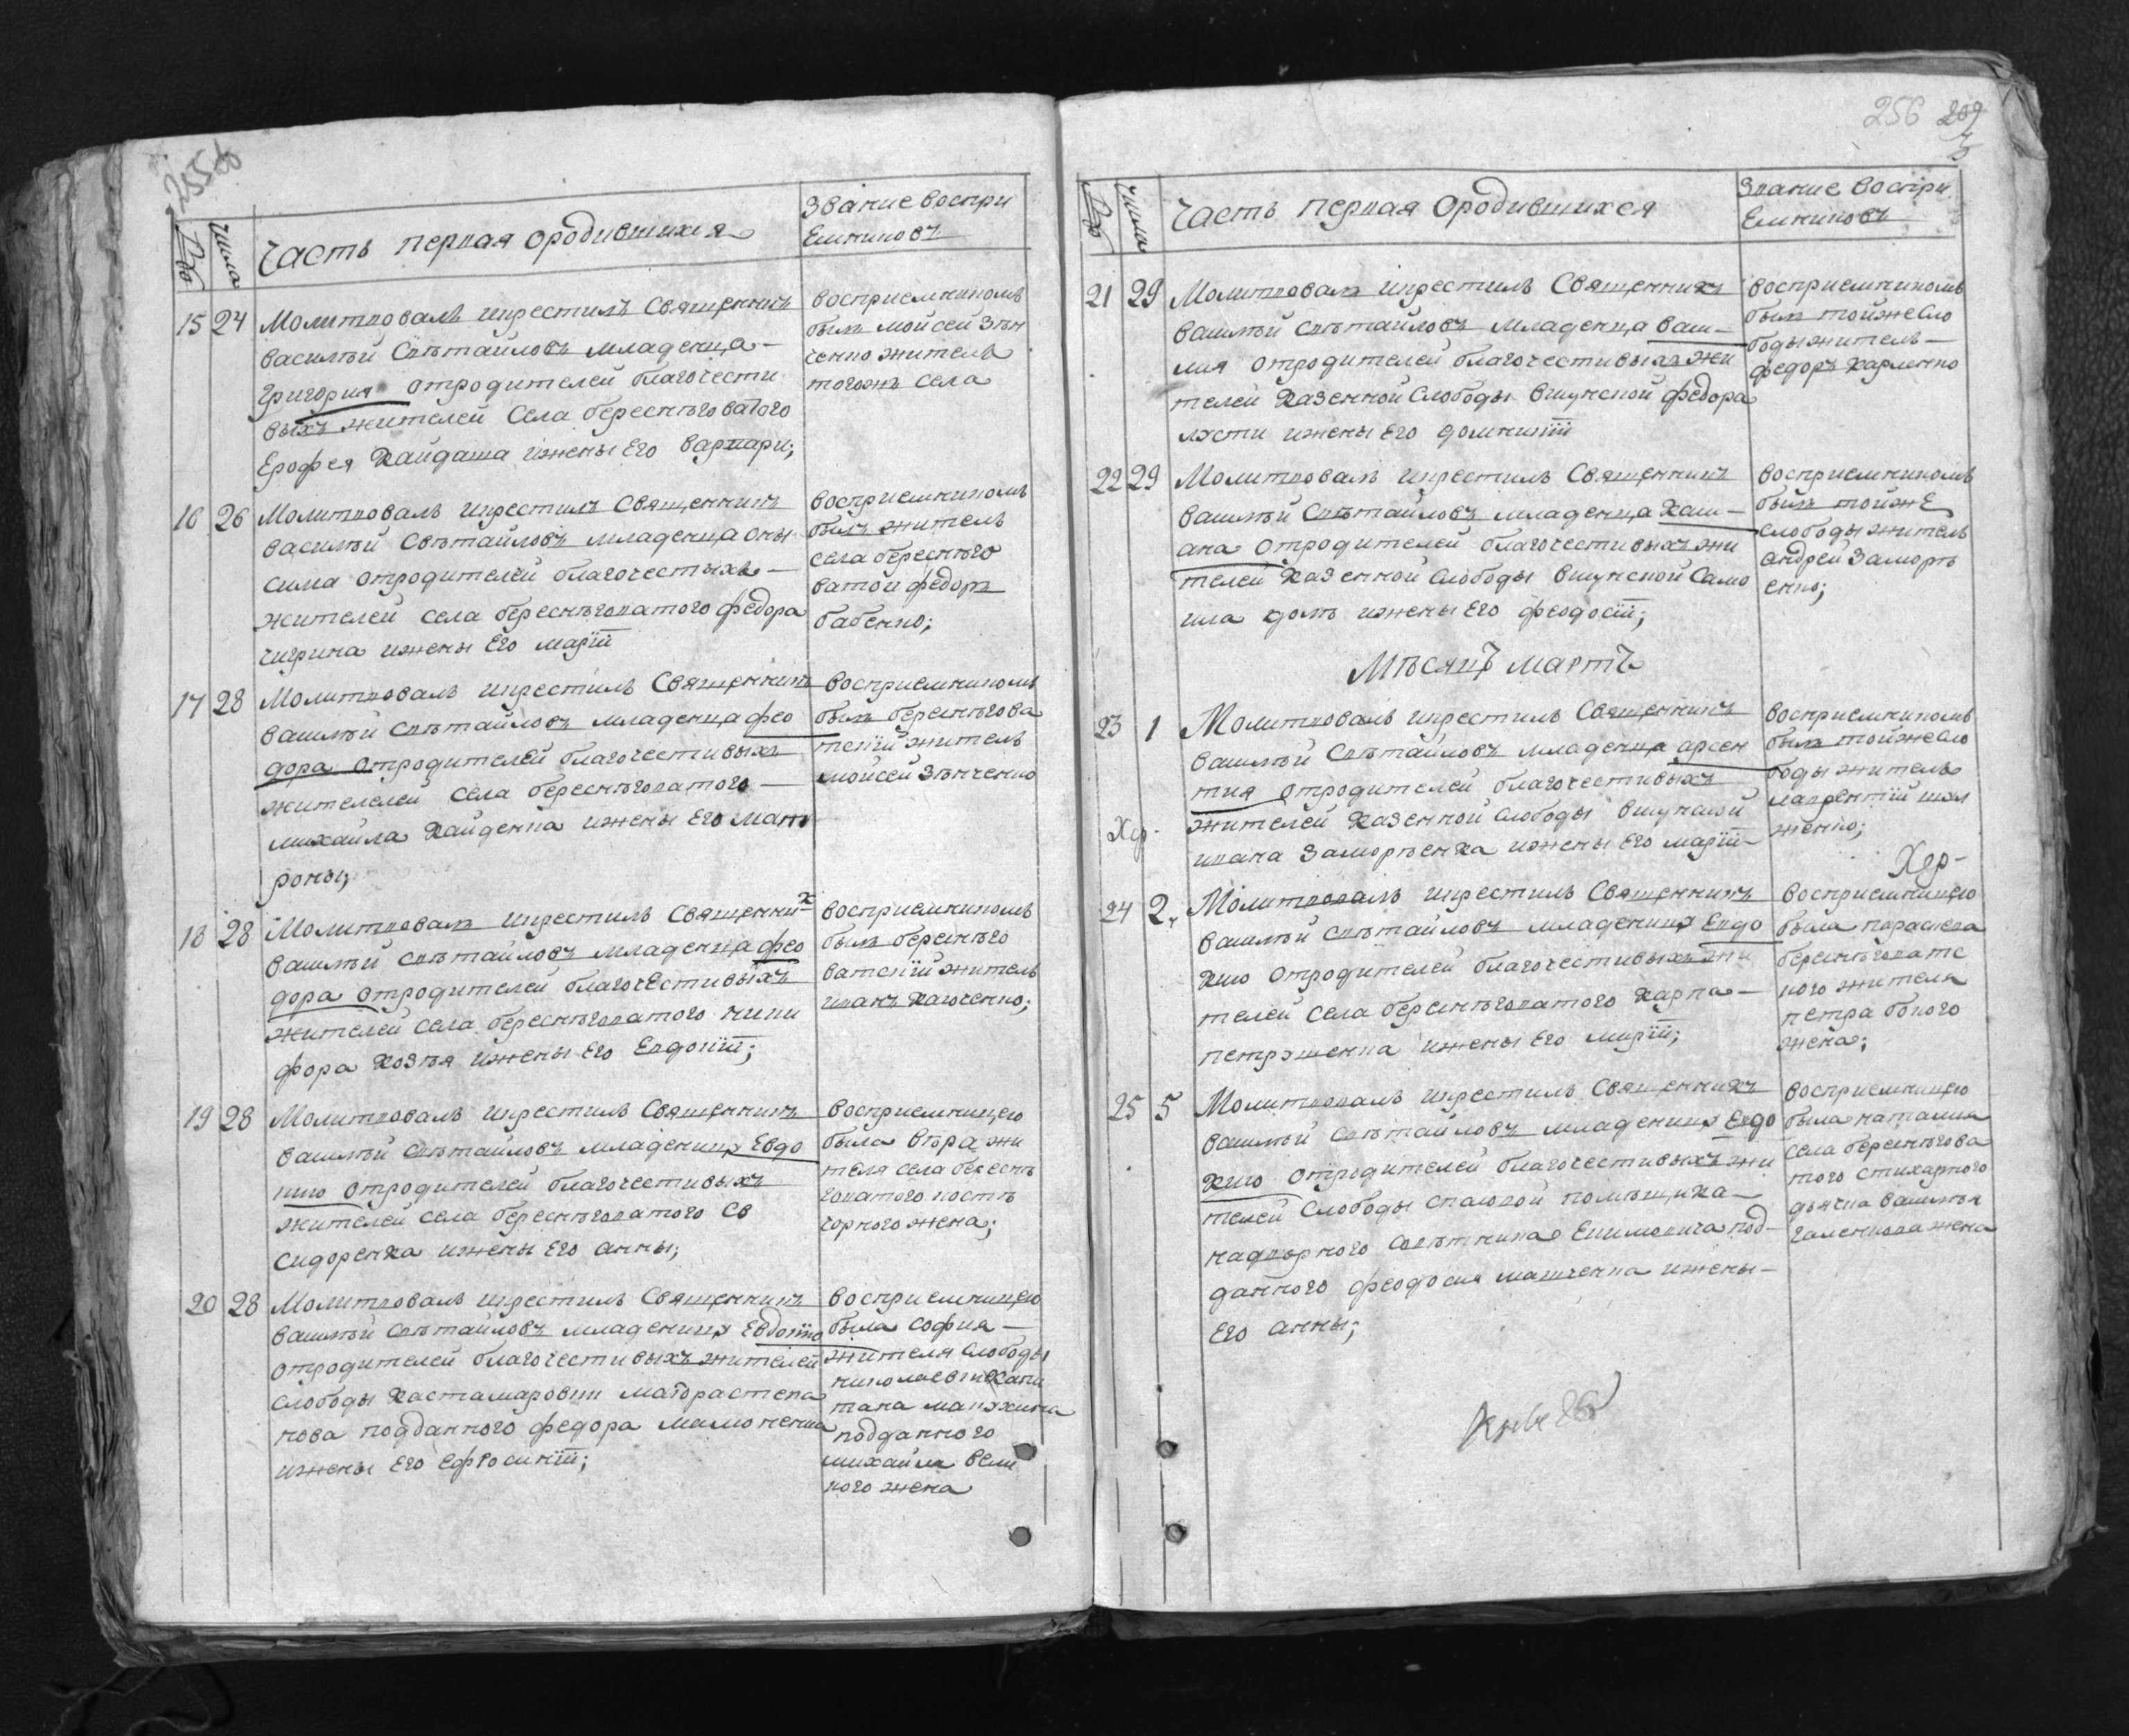 255 об
№
числа
Часть первая ородившихся
Звание воспри
Емниковъ
15 24 Молитвовалъ икрестилъ Священникъ
василѣй Свѣтайловъ младенца
григория отродителей благочести
выхъ жителей Села береснѣговатого
Ерофея Кайдаша ижены Его варвари;
восприемникомъ
былъ мойсей Зѣн
ченко житель
тогожъ села
16 26 Молитвовалъ икрестилъ Священникъ
василѣй Свѣтайловъ младенца они
сима отродителей благочестыхъ
жителей села береснѣговатого федора
чигрина ижены Его марїй
восприемникомъ
былъ житель
села береснѣго
ватой федоръ
бабенко;
17 28 Молитвовалъ икрестилъ Священникъ
василѣй Свѣтайловъ младенца фео
дора отродителей благочестивыхъ
жителелей села береснѣговатого
михайла Кайденка ижены Его мат
роны;
восприемникомъ
былъ береснѣгова
тскїй житель
мойсей Зѣнченко
18 28 Молитвовалъ икрестилъ Священник
василѣй свѣтайловъ младенца фео
дора отродителей благочестивыхъ
жителей села береснѣговатого ники
фора Козѣя ижены Его Евдокїй;
восприемникомъ
былъ береснѣго
ватскїй житель
иванъ
19 28 Молитвовалъ икрестилъ Священникъ
василѣй Свѣтайловъ младеницу Евдо
кию отродителей благочестивыхъ
жителей села береснѣговатого
сидоренка ижены Его анны;
восприемницею
была вѣра жи
теля села береснѣ
говатого костѣ
чорного жена;
20 28 Молитвовалъ икрестилъ Священникъ
василѣй Свѣтайловъ младеницу Евдокїю
отродителей благочестивыхъ жителей
слободы Кастамаровки маїора степа
нова подданного федора мамоненка
ижены Его Ефросинїй;
восприемницею
была софия
жителя слободы
николаевки Капи
тана
подданного
михайла вели
кого жена
256 209
3
№
числа
Часть первая ородившихся
Звание воспри
Емниковъ
21 29 Молитвовалъ икрестилъ Священникъ
василѣй Свѣтайловъ младенца васи
лия отродителей благочестивыхъ жи
телей Казенной Слободы висунской федора
ижены Его домникїй
восприемникомъ
былъ тойже Сло
боды житель
федоръ харченко
22 29 Молитвовалъ икрестилъ Священникъ
василѣй Свѣтайловъ младенца Каси
ана отродителей благочестивыхъ жи
телей Казенной Слободы висунской Само
ила ижены Его феодосїй;
восприемникомъ
былъ тойжЕ
слободы житель
андрей Заморѣ
енко;
Мѣсяцъ мартъ
23 1 Молитвовалъ икрестилъ Священникъ
василѣй Свѣтайловъ младенца арсен
тия отродителей благочестивыхъ
жителей Казенной Слободы висунской
ивана Заморѣенка ижены Его марїй
восприемникомъ
былъ тойже сло
боды житель
лаврентїй
женко;
Хер.
Хер-
24 2 Молитвовалъ икрестилъ Священникъ
василѣй Свѣтайловъ младеницу Евдо
кию отродителей благочестивыхъ жи
телей села береснѣговатого Карпа
петрэшенка ижены Его марїй;
восприемницею
была параскева
береснѣговатс
кого жителя
петра бокого
жена;
25 5 Молитвовалъ икрестилъ Священникъ
василѣй Свѣтайловъ младеницу Евдо
кию отродителей благочестивыхъ жи
телей Слободы спаской помѣщика
надворного совѣтника Екимовича под
данного феодосия машченка ижены
Его анны;
восприемницею
была наталия
села береснѣгова
того стихарного
дьячка василѣя
галенкова жена